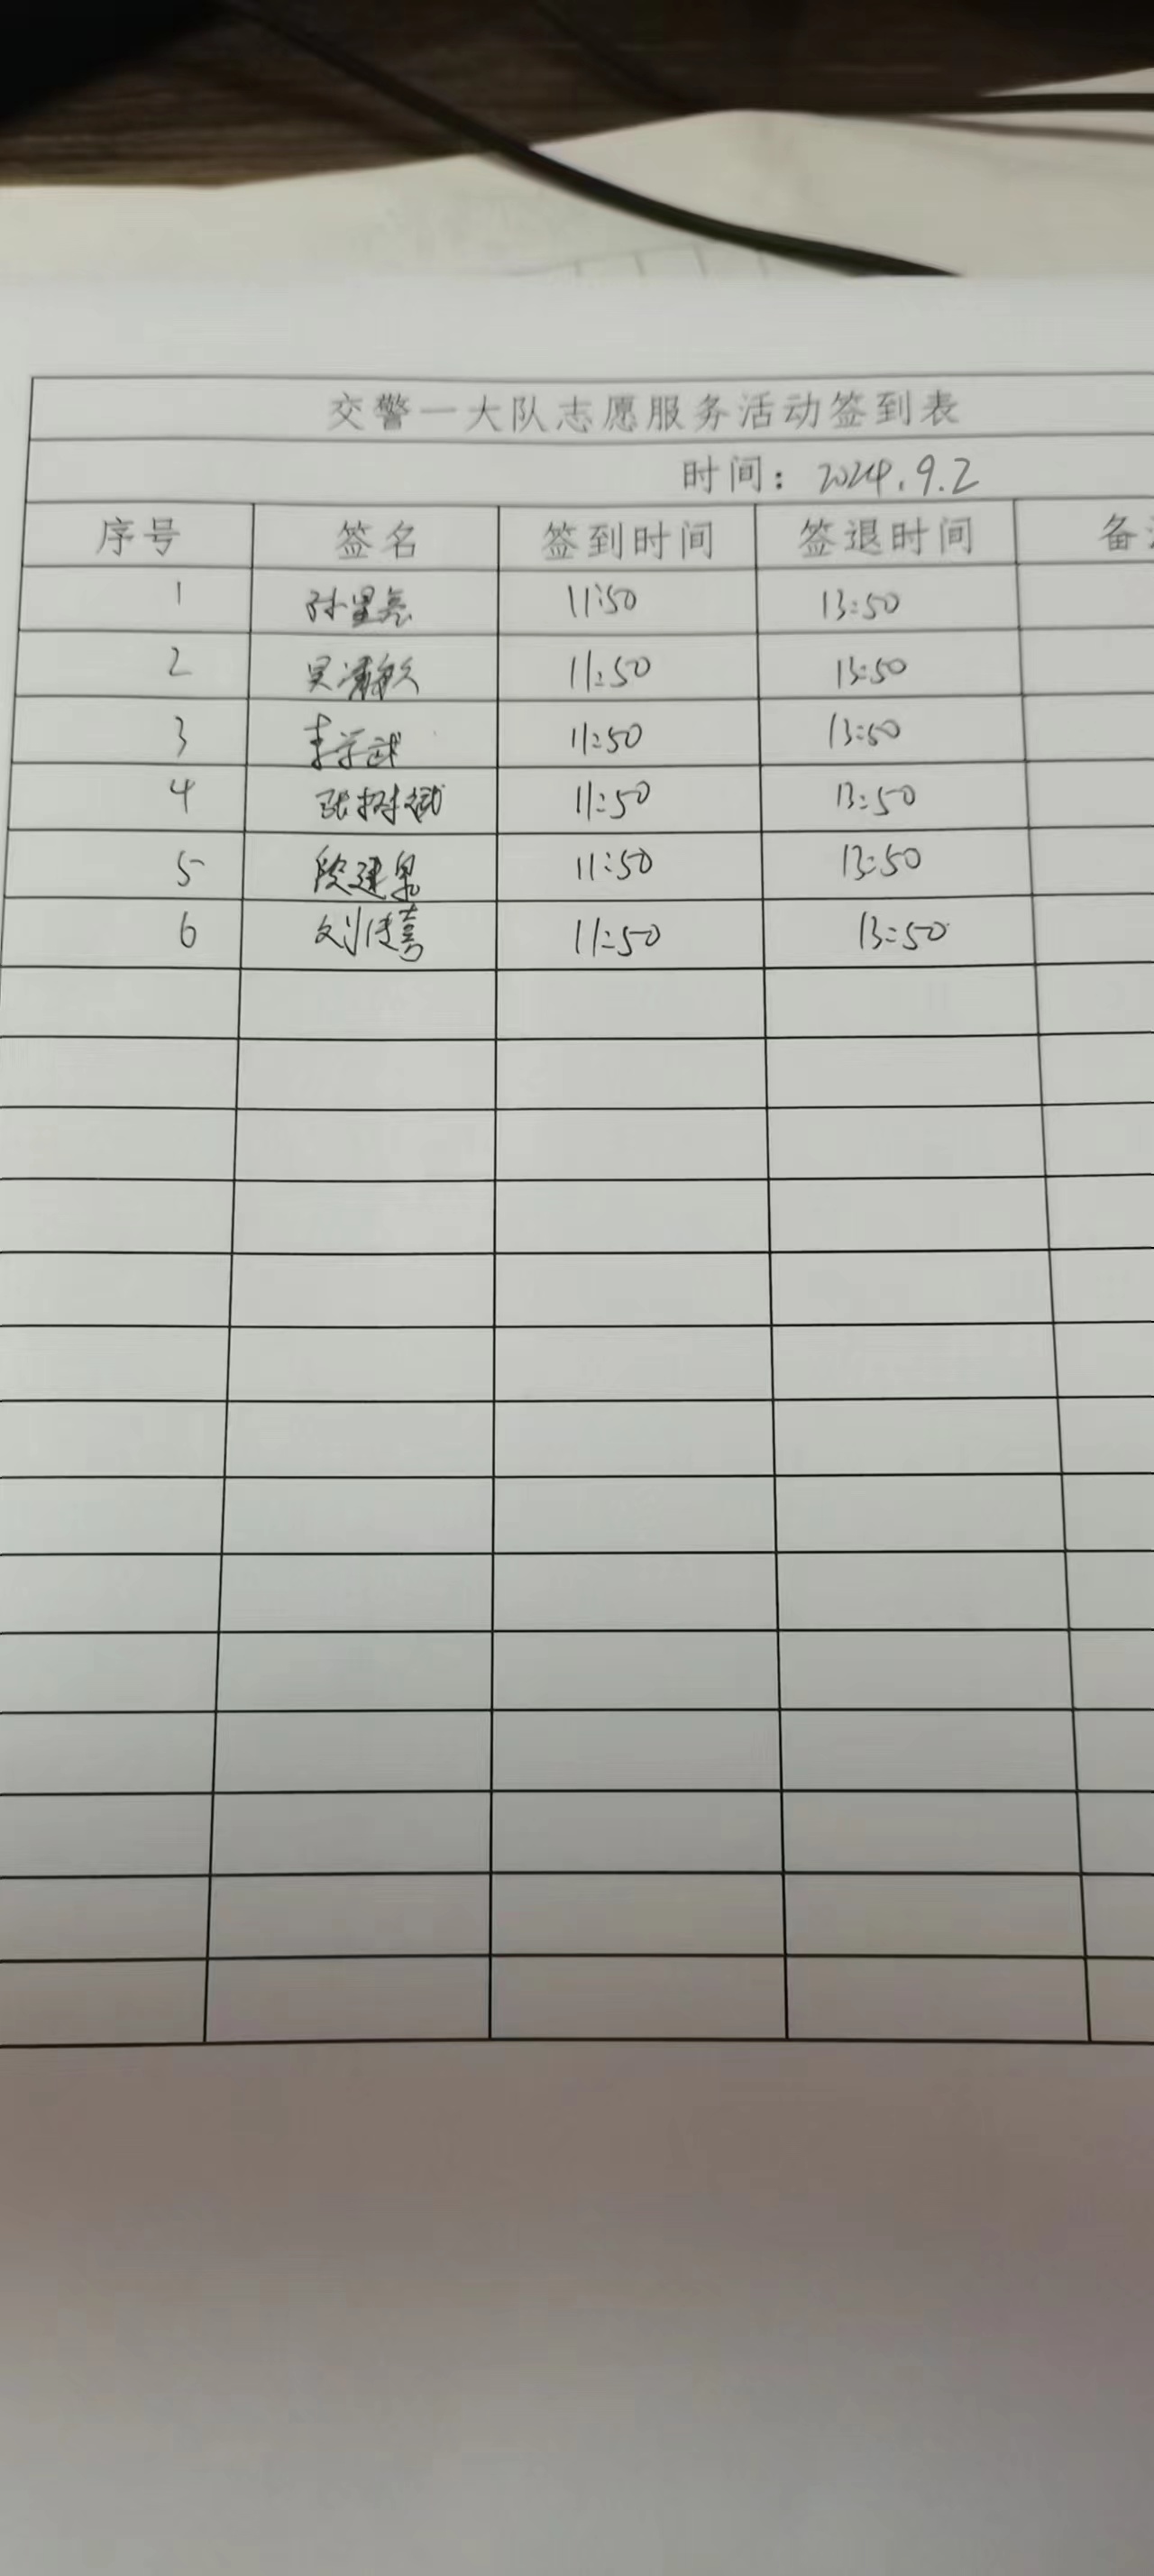 交警一大队志愿服务活动签到表
时间：2024.9.2
序号 签名 签到时间 签退时间 备
1 孙星亮 11:50 13:50
2 吴 11:50 13:50
3 李学武 11:50 13:50
4 张树斌 11:50 13:50
5 段建泉 11:50 13:50
6 刘佳喜 11:50 13:50